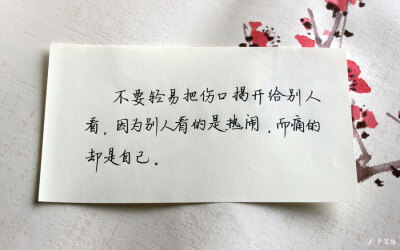 不要轻易把伤口揭开给别人
看，因为别人看的是热闹，而痛的
却是自己。
手写馆